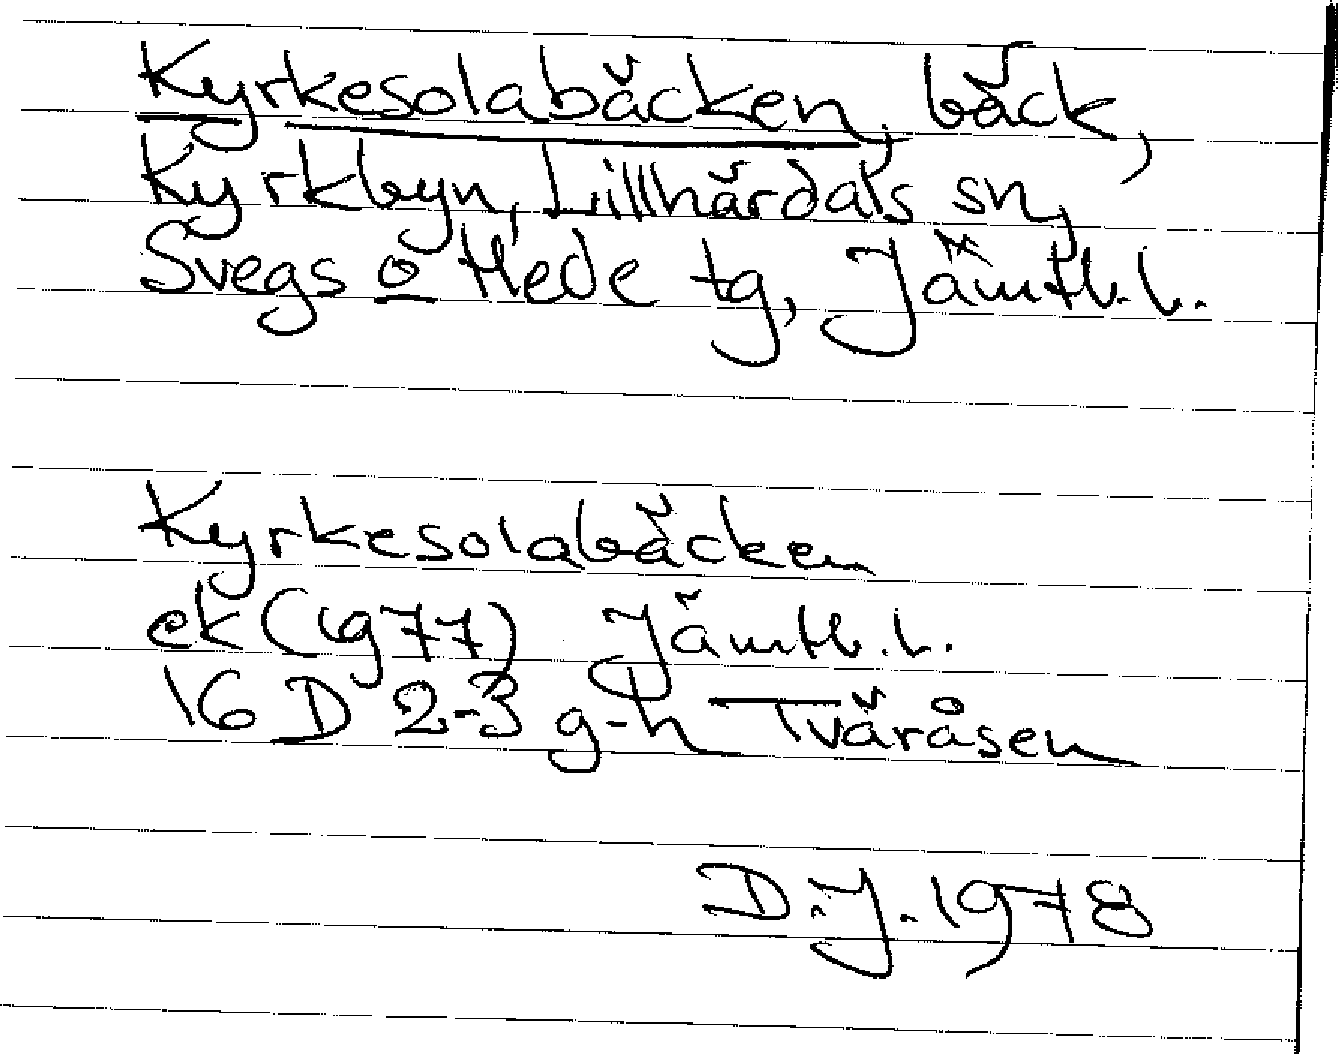 Kyrkesolabäcken, bäck,
Kyrkbyn, Lillhärdals sn,
Svegs o Hede tg, Jämtl. l.
Kyrkesolabäcken
ek (1977) Jämtl. l.
16 D 2-3 g-h Tväråsen
D.J. 1978